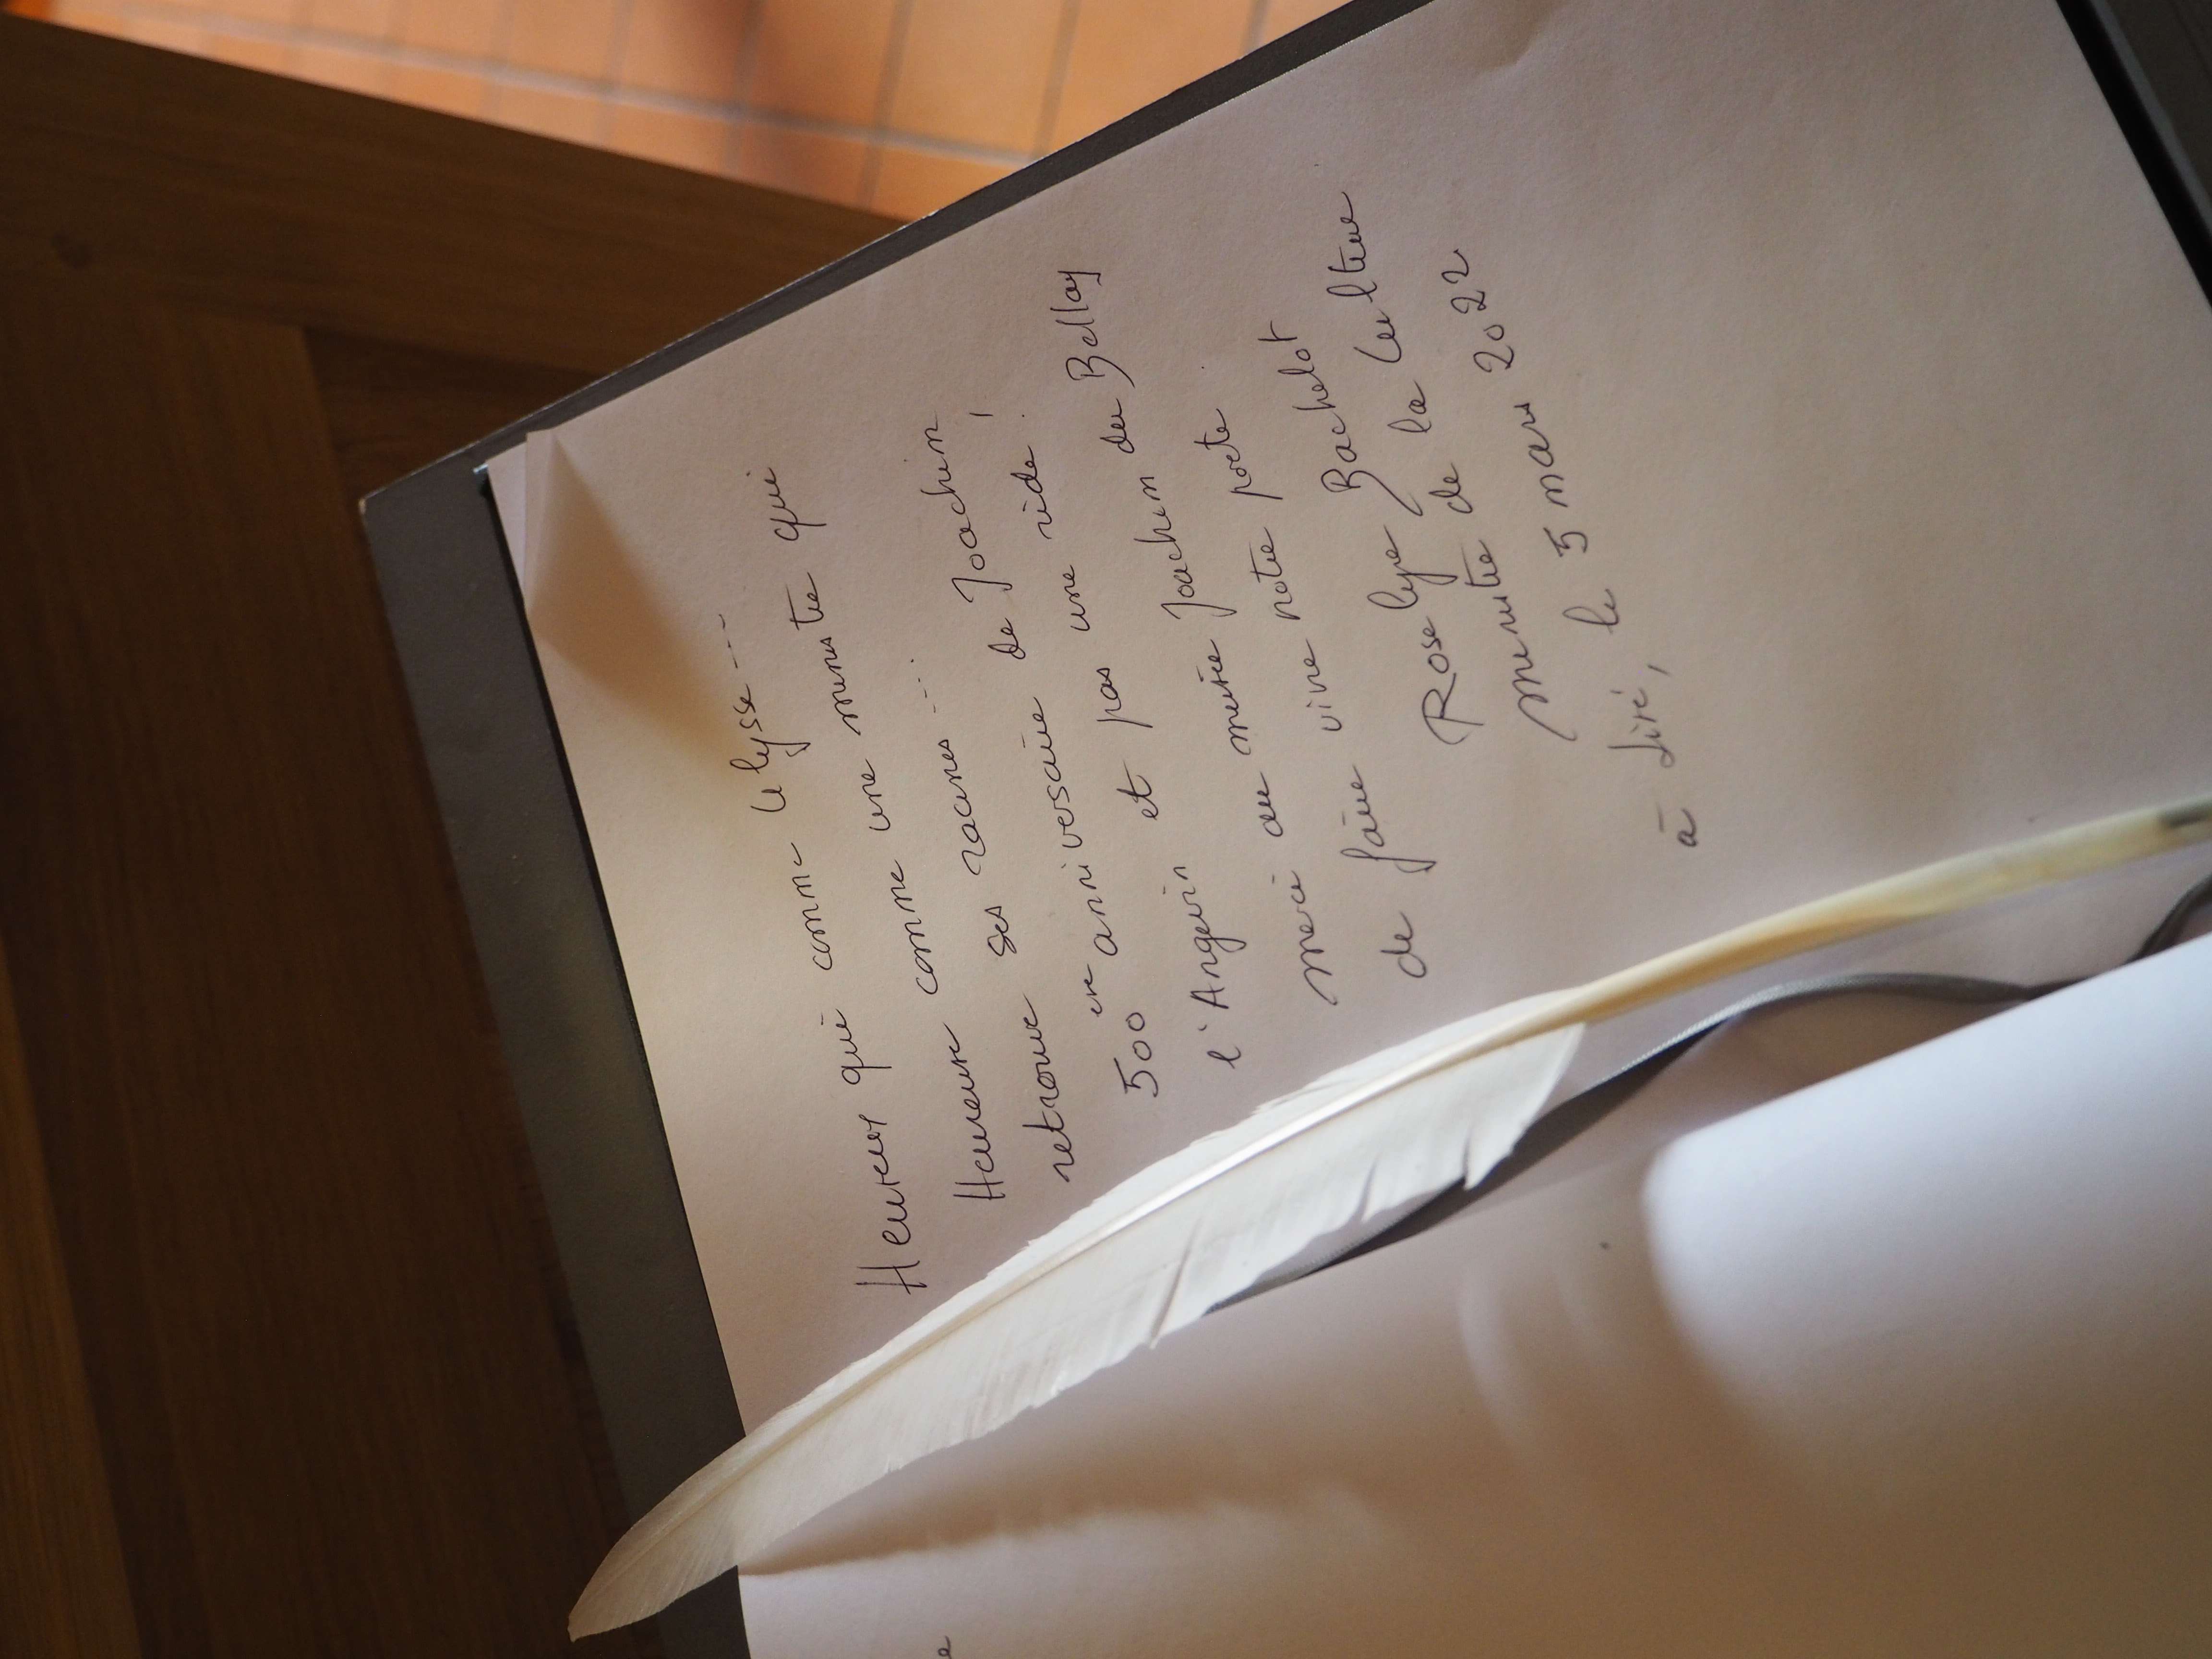 Heureux qui comme Ulysse ---
Heureuse comme une ministre qui
retrouve ses racines ....
500 eme anniversaire de Joachim
et pas une ride !
l'Angevin Joachim du Bellay
merci au musée notre poète
de faire vivre
Roselyne Bachelot
ministre de la Culture
à Liré, le 5 mars 2022
e